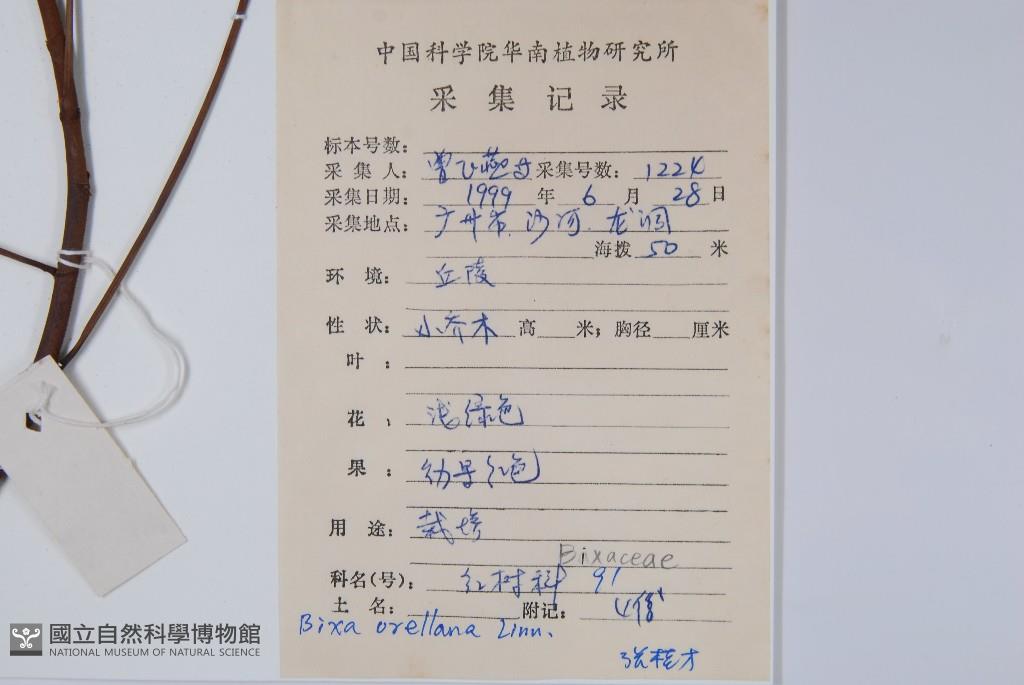 中国科学院华南植物研究所
采集记录
标本号数:
采集人: 曾飞燕等 采集号数: 1224
采集日期: 1999 年 6 月 28 日
采集地点: 广州市.沙河.龙洞
海拨 50 米
环境: 丘陵
性状: 小乔木 高 米; 胸径 厘米
叶:
花: 浅绿色
果: 幼果红色
用途: 栽培
Bixaceae
科名(号): 红树科 91
土名: 附记: 4份
Bixa orellana Linn.
张桂才
國立自然科學博物館
NATIONAL MUSEUM OF NATURAL SCIENCE